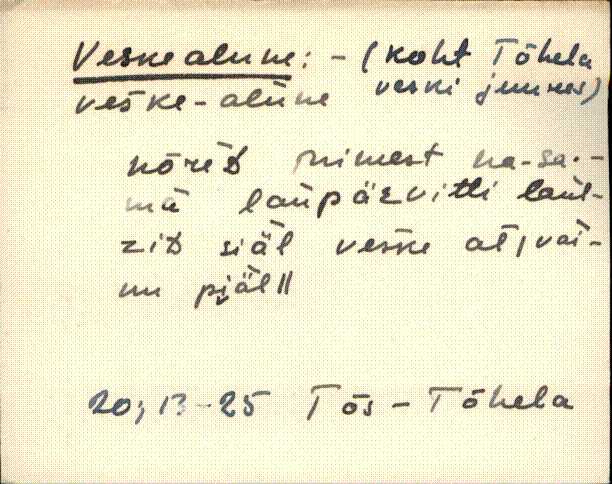 Veskealune: - (koht Tõhela
veške-alune veski juures)
nōrēD inimest na·sa·-
mā laupäävitti laul-
ziD siäl veške al, vai-
nu piäl ||
20; 13-25 Tõs - Tõhela